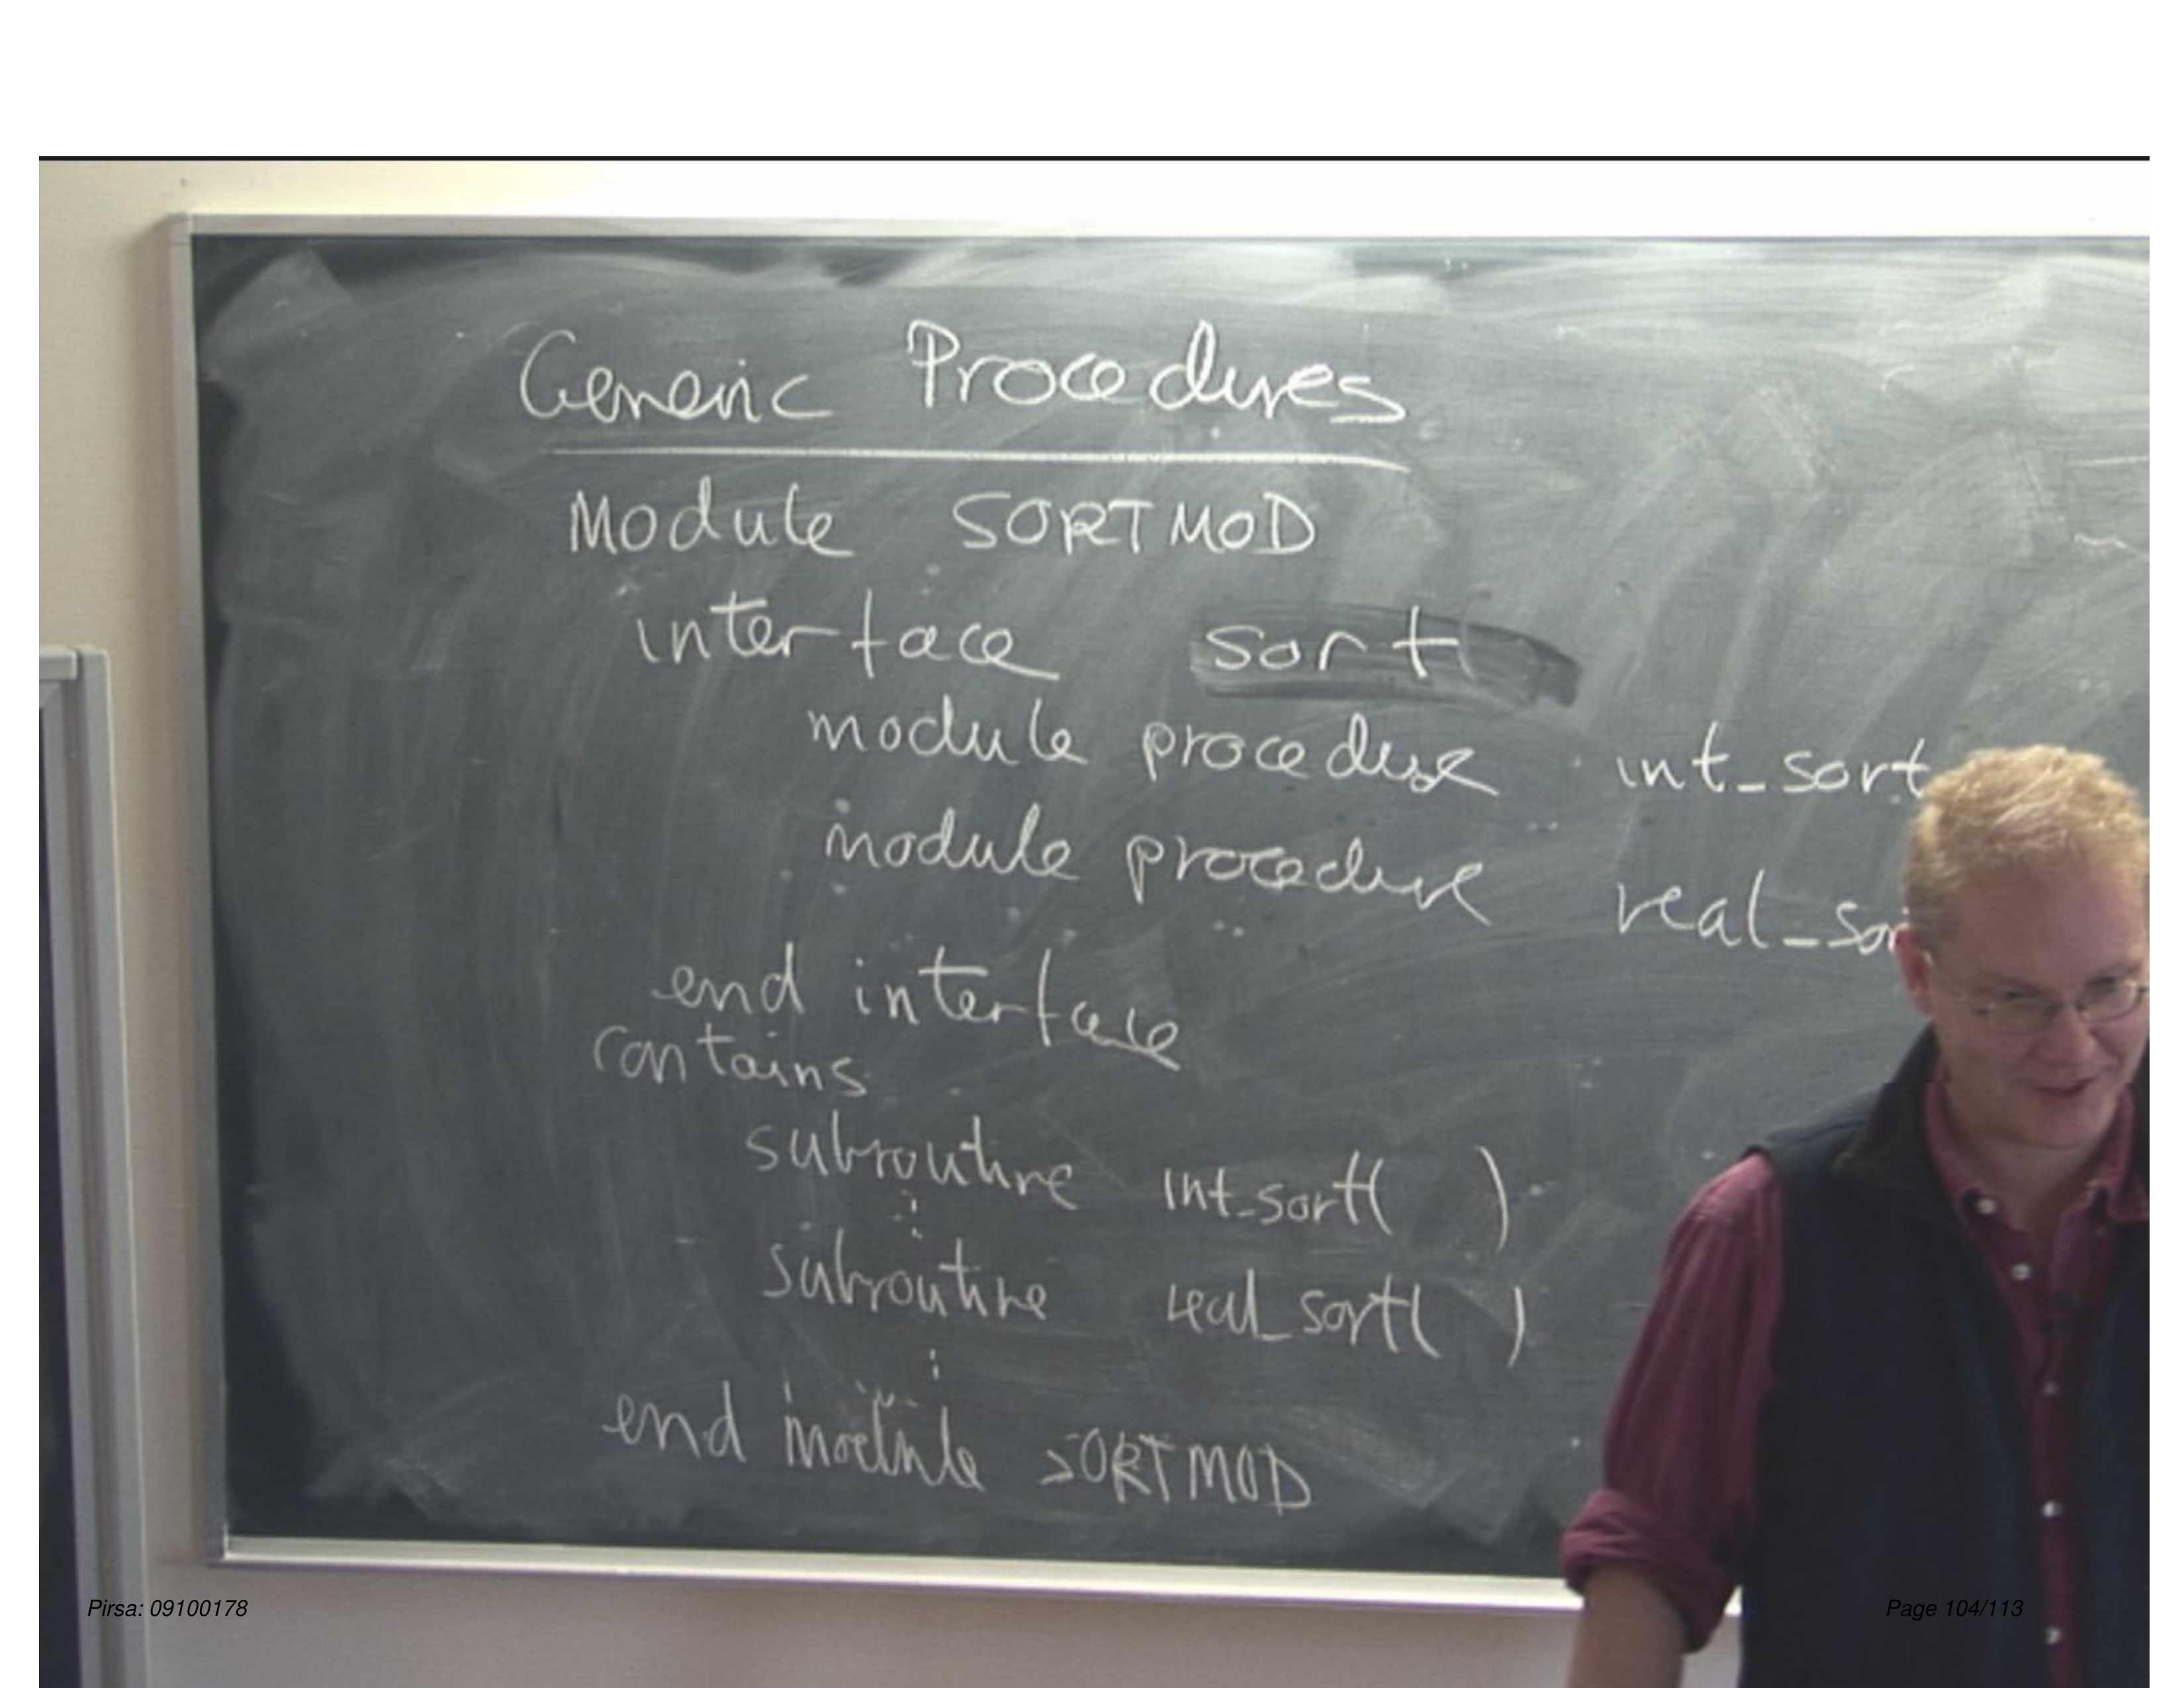 Generic Procedures
Module SORTMOD
interface sort
module procedure int_sort
module procedure real_sor
end interface
contains
subroutine int_sort( )
subroutine real_sort( )
end module SORTMOD
Pirsa: 09100178
Page 104/113